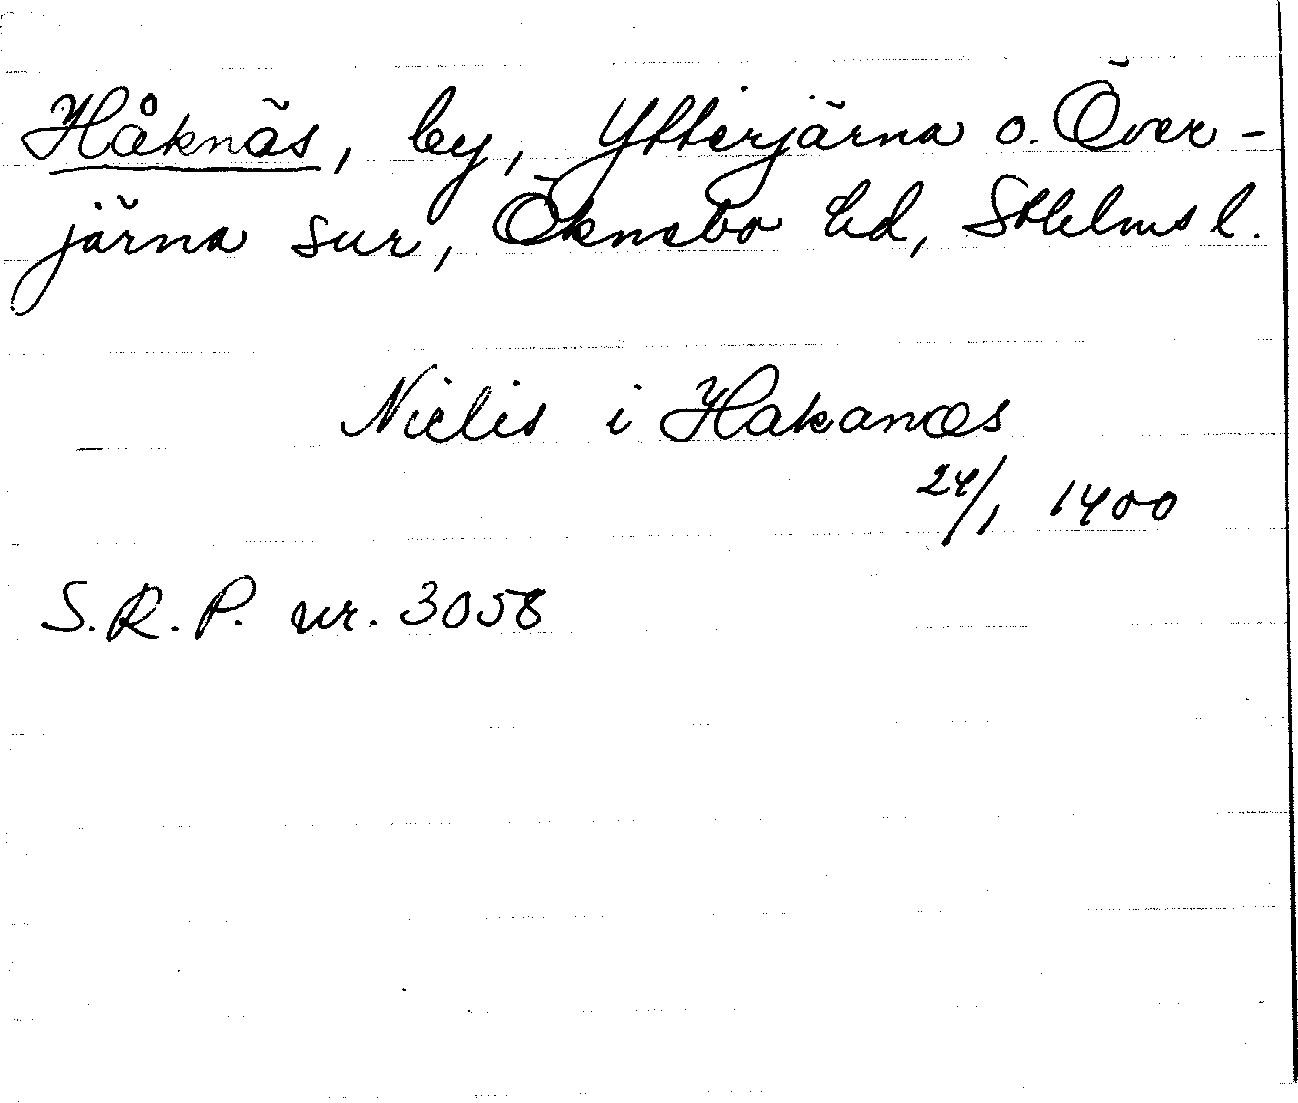 Håknäs, by, Ytterjärna o. Över-
järna snr, Öknebo hd, Sthlms l.
Niclis i Hakanæs
24/1 1400
S.R.P. nr. 3058